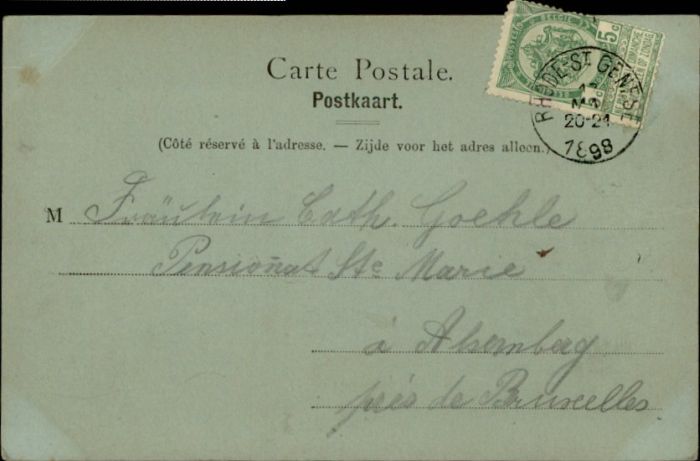 Carte Postale.
Postkaart.
(Côté réservé à l'adresse. — Zijde voor het adres alleen.)
M Fräulein Cath. Goehle
Pensionnat Ste Marie
à Alsemberg
près de Bruxelles
BELGIE
5c
RHODE-ST GENESE
20-21
1898